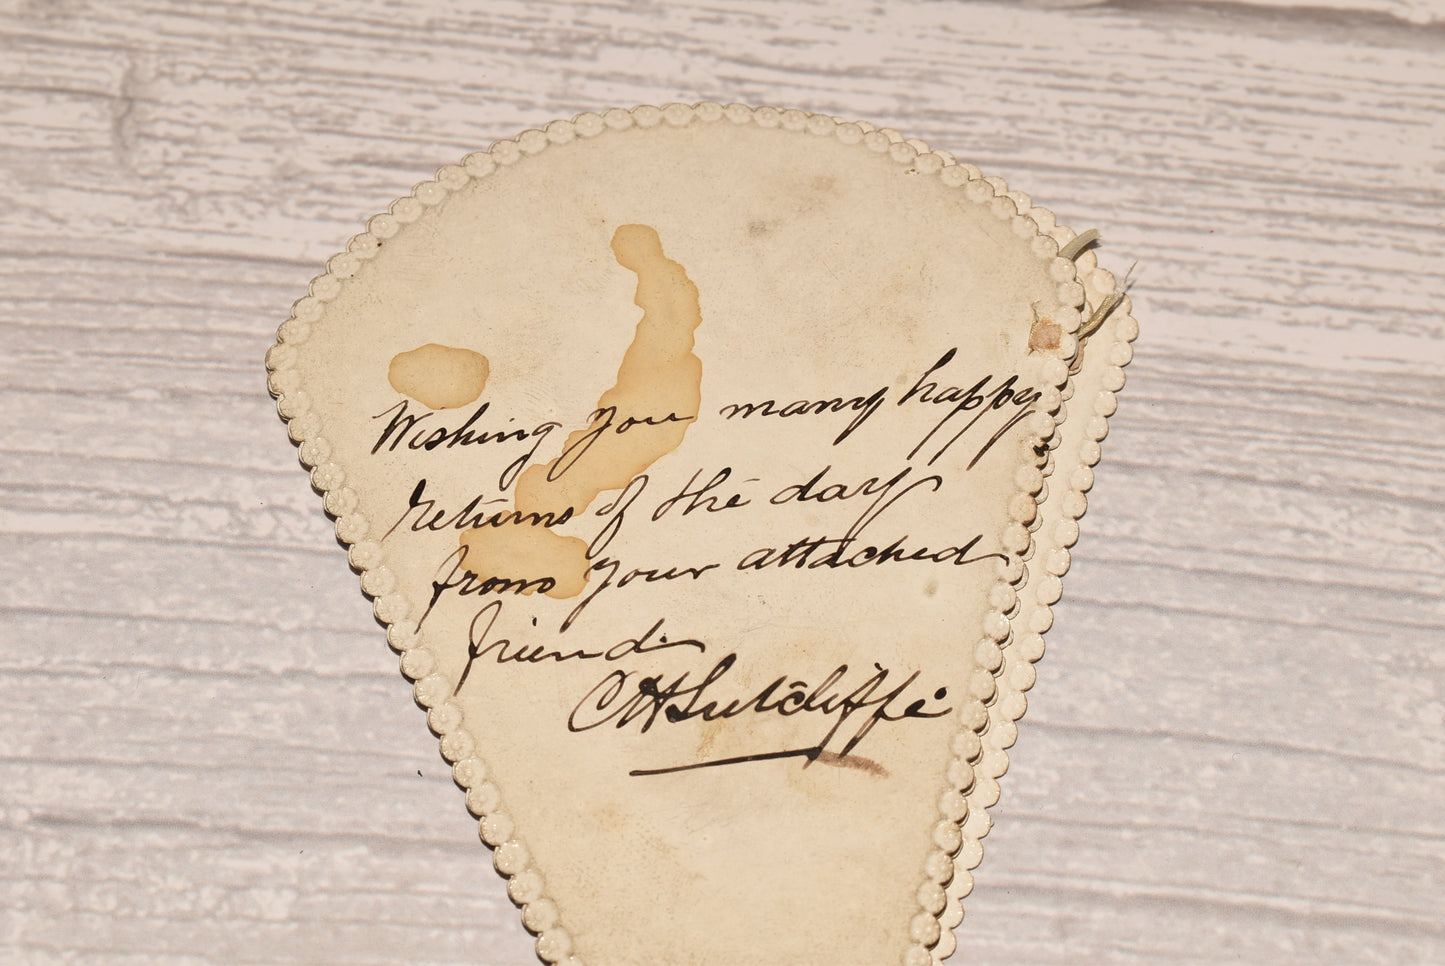 Wishing you many happy
returns of the day
from your attached
friend
CHSutcliffe